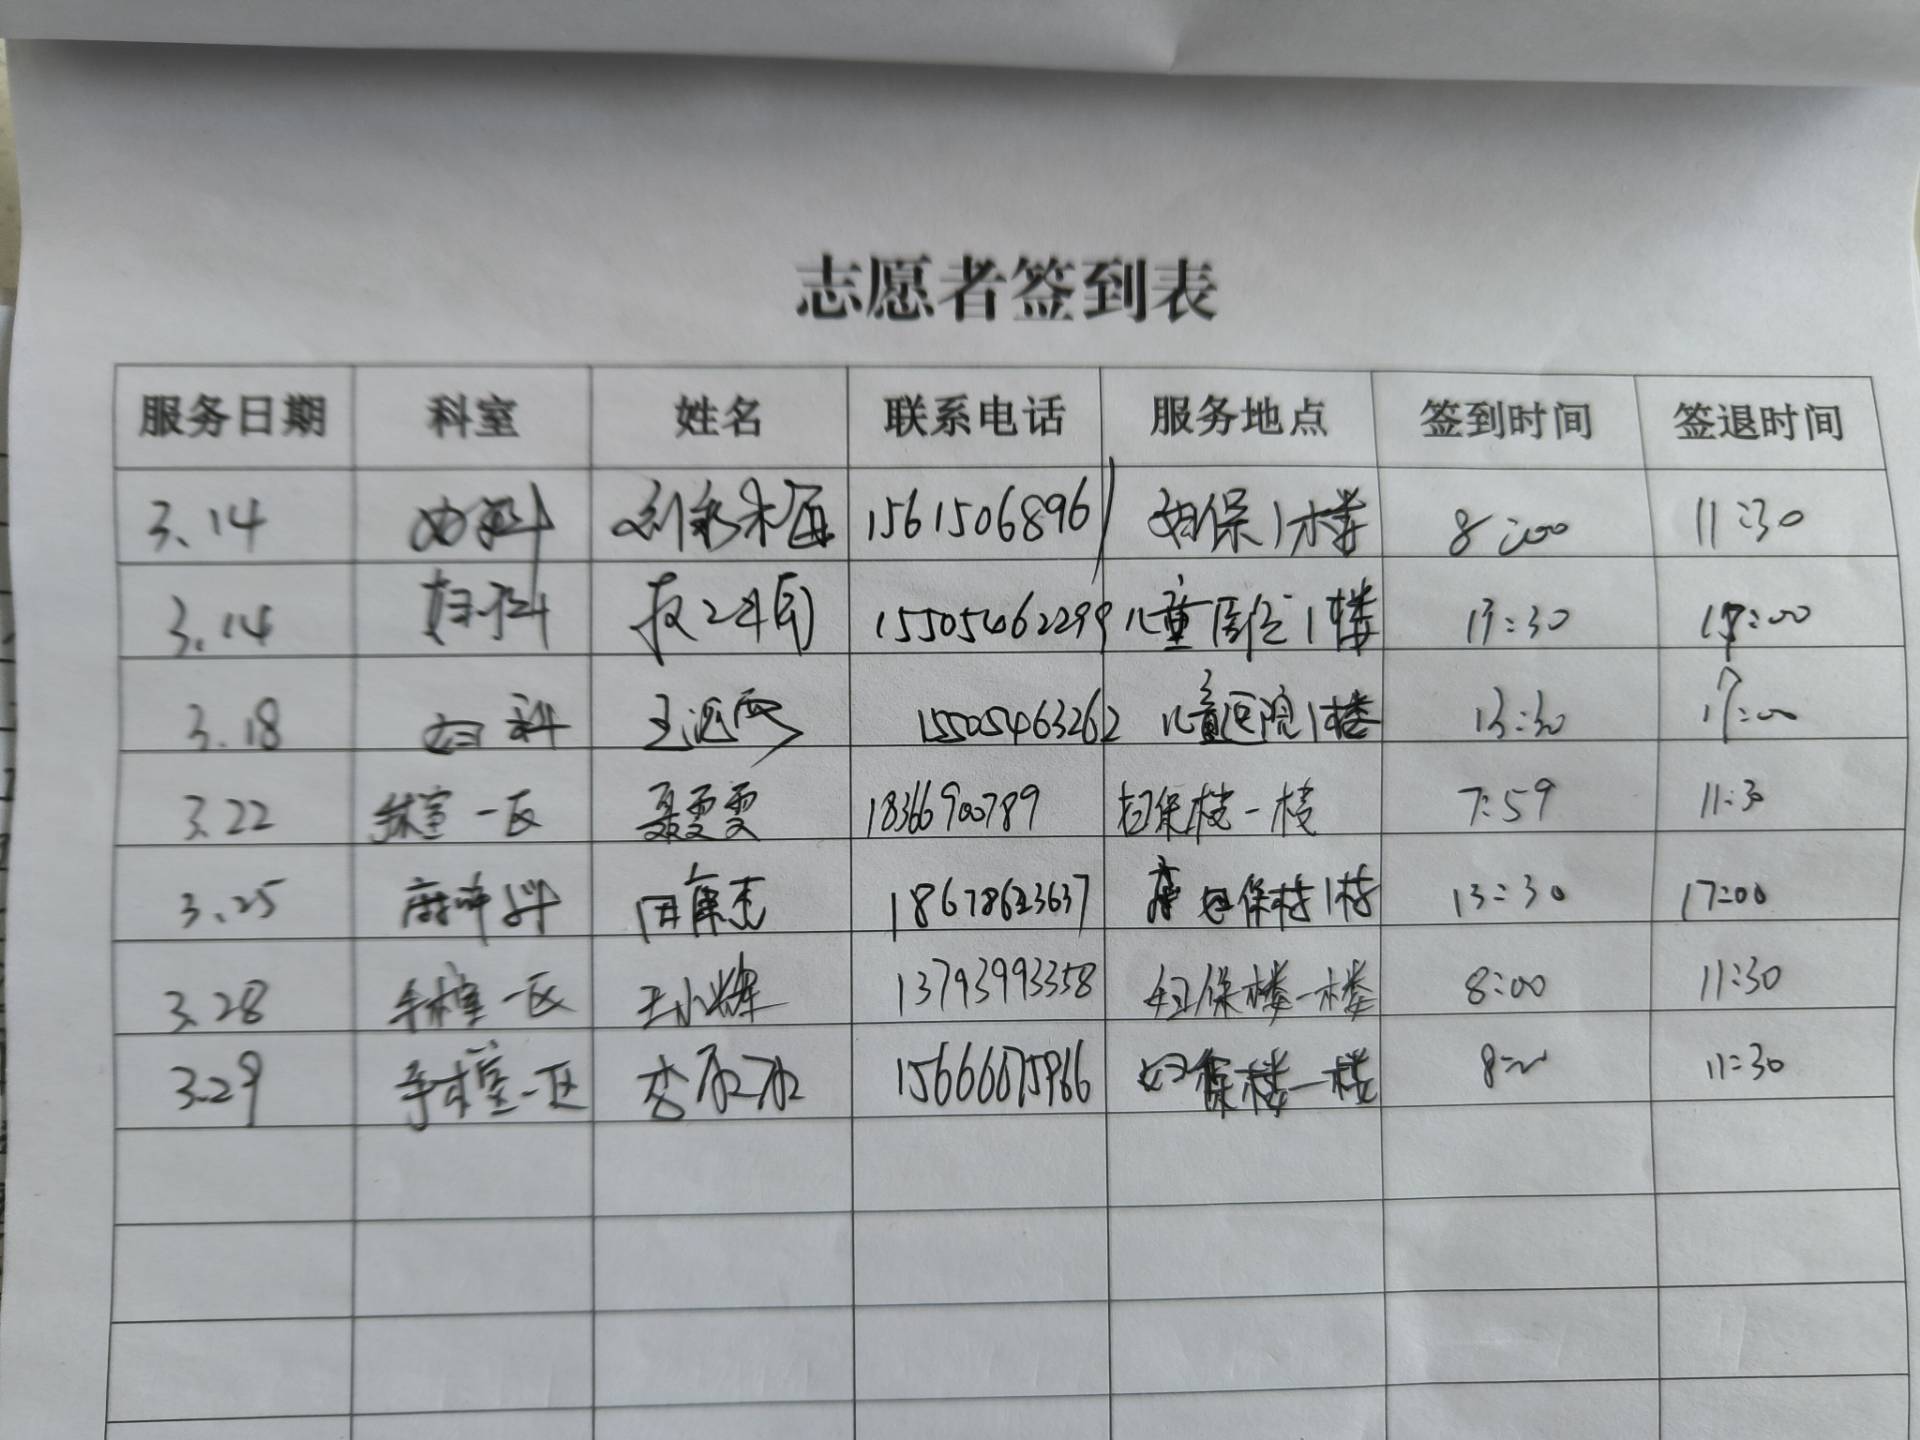 志愿者签到表
服务日期 科室 姓名 联系电话 服务地点 签到时间 签退时间
3.14 妇科 15615068961 妇保1楼 8:00 11:30
3.14 妇科 15505462299 儿童医院1楼 13:30 17:00
3.18 妇科 15505463262 儿童医院1楼 13:30 17:00
3.22 手术室一区 聂雯雯 18366900789 妇保楼一楼 7:59 11:30
3.25 麻醉科 田康杰 18678623637 妇保楼1楼 13:30 17:00
3.28 手术室一区 王小辉 13793993358 妇保楼一楼 8:00 11:30
3.29 手术室一区 15666675966 妇保楼一楼 8:00 11:30